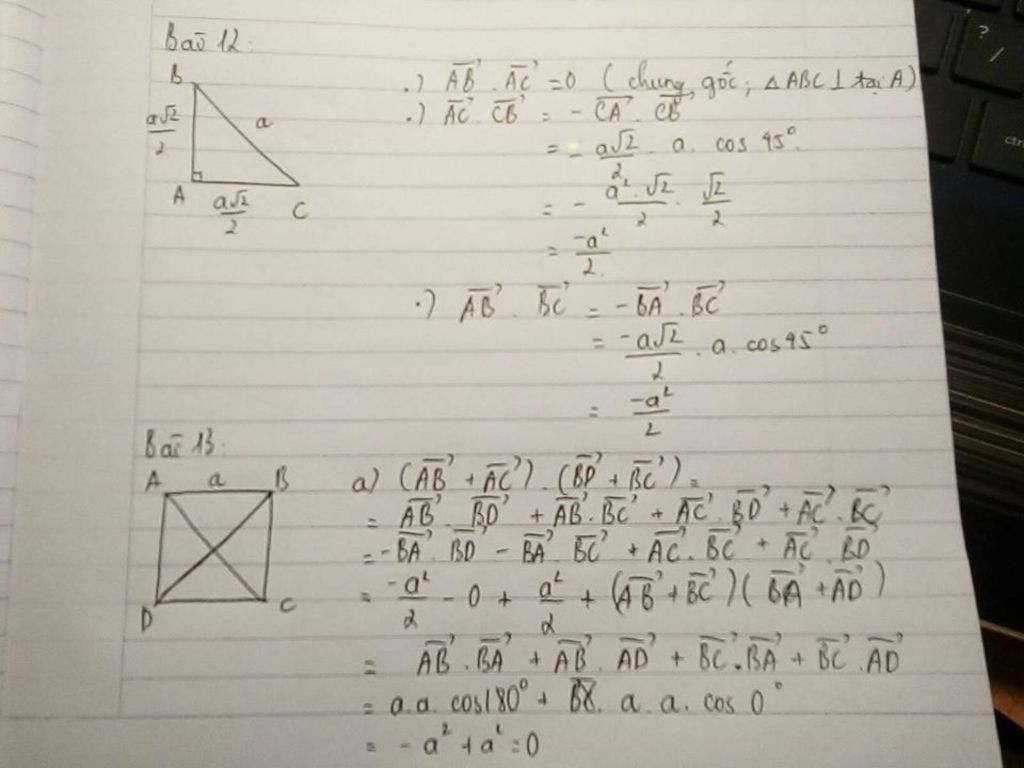 Bài 12:
B
a√2/2
a
A
a√2/2
C
.) AB⃗ . AC⃗ = 0 ( chung gốc; △ ABC ⊥ tại A)
.) AC⃗ . CB⃗ = - CA⃗ . CB⃗
= - a√2/2 . a . cos 45°.
= - a².√2/2 . √2/2
= -a²/2.
.) AB⃗ . BC⃗ = - BA⃗ . BC⃗
= -a√2/2 . a . cos 45°
= -a²/2
Bài 13:
A a B
D C
a) (AB⃗ + AC⃗) . (BD⃗ + BC⃗) =
= AB⃗ . BD⃗ + AB⃗ . BC⃗ + AC⃗ . BD⃗ + AC⃗ . BC⃗
= - BA⃗ . BD⃗ - BA⃗ . BC⃗ + AC⃗ . BC⃗ + AC⃗ . BD⃗
= -a²/2 - 0 + a²/2 + (AB⃗ + BC⃗)(BA⃗ + AD⃗)
= AB⃗ . BA⃗ + AB⃗ . AD⃗ + BC⃗ . BA⃗ + BC⃗ . AD⃗
= a.a. cos180° + a. a. cos 0°
= - a² + a² = 0